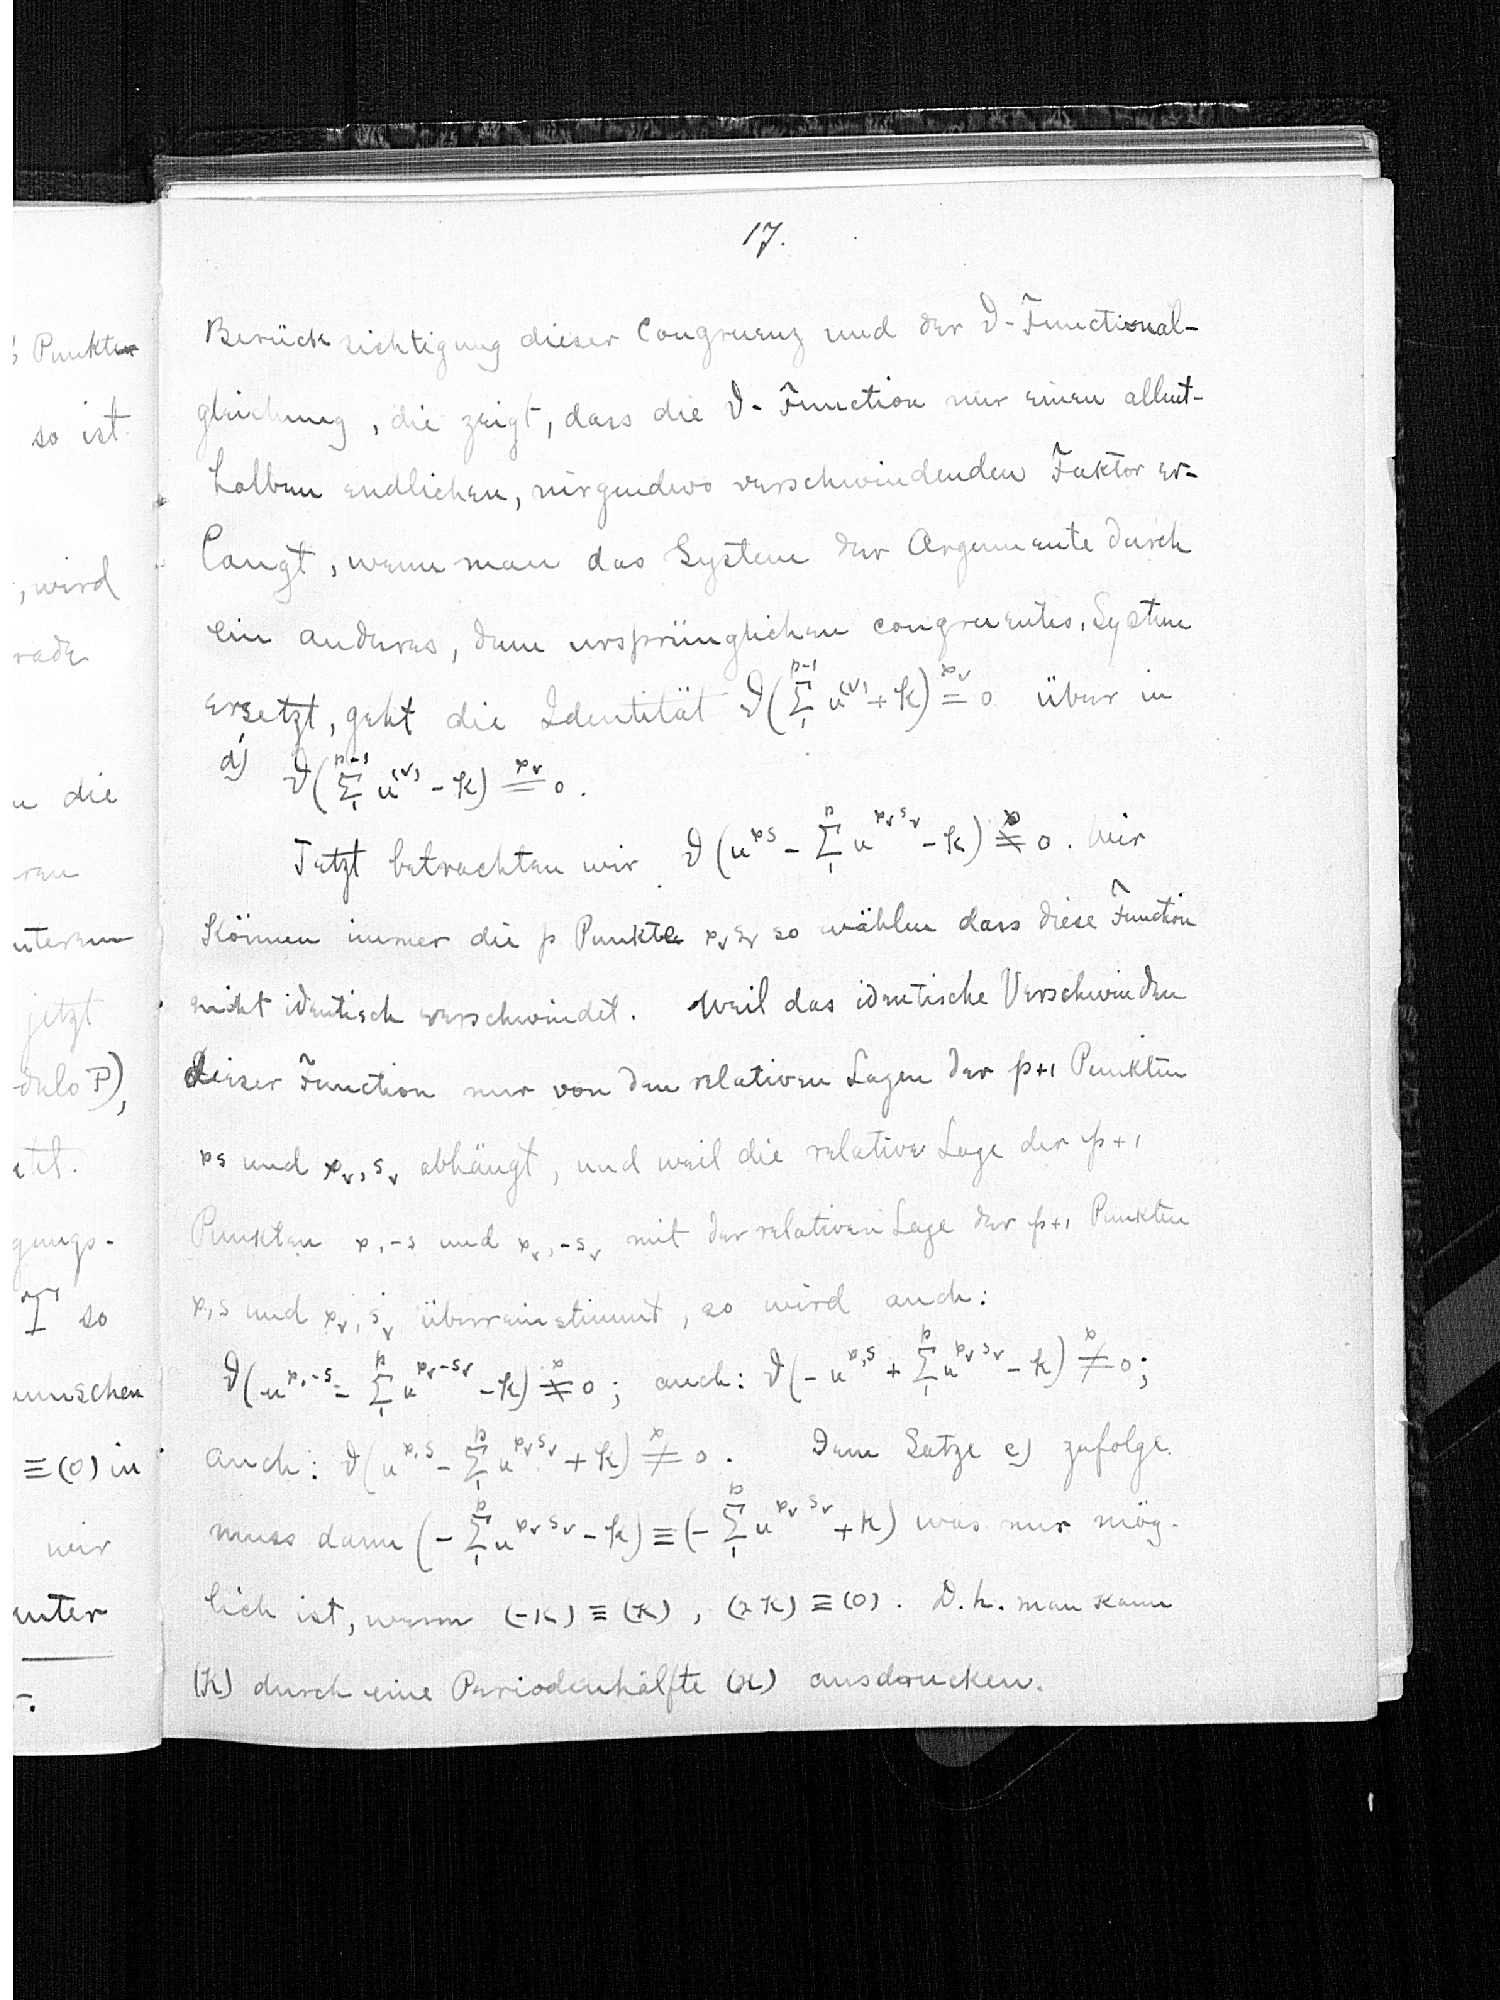 17.
Berücksichtigung dieser Congruenz und der ϑ-Functional-
gleichung, die zeigt, dass die ϑ-Function nur einen allent-
halben endlichen, nirgendwo verschwindenden Faktor er-
langt, wenn man das System der Argumente durch
ein anderes, dem ursprünglichen congruentes, System
ersetzt, geht die Identität ϑ(∑₁^{p-1} u^{(ν)} + k) =^{x_ν} 0 über in
d) ϑ(∑₁^{p-1} u^{(ν)} - k) =^{x_ν} 0.
Jetzt betrachten wir ϑ(u^{xs} - ∑₁^{p} u^{x_ν s_ν} - k) ≠^{x} 0. Wir
können immer die p Punkte x_ν s_ν so wählen dass diese Function
nicht identisch verschwindet. Weil das identische Verschwinden
dieser Function nur von den relativen Lagen der p+1 Punkten
xs und x_ν, s_ν abhängt, und weil die relative Lage der p+1
Punkten x,-s und x_ν,-s_ν mit der relativen Lage der p+1 Punkten
x,s und x_ν, s_ν übereinstimmt, so wird auch:
ϑ(u^{x,-s} - ∑₁^{p} u^{x_ν-s_ν} - k) ≠^{x} 0; auch: ϑ(-u^{x,s} + ∑₁^{p} u^{x_ν s_ν} - k) ≠^{x} 0;
auch: ϑ(u^{x,s} - ∑₁^{p} u^{x_ν s_ν} + k) ≠^{x} 0. Dem Satze c) zufolge
muss dann (-∑₁^{p} u^{x_ν s_ν} - k) ≡ (-∑₁^{p} u^{x_ν s_ν} + k) was nur mög-
lich ist, wenn (-k) ≡ (k), (2k) ≡ (0). D.h. man kann
(k) durch eine Periodenhälfte (κ) ausdrucken.
Punkten
so ist
, wird
rade
die
ren
unteren
jetzt
dulo P),
gungs-
T so
≡ (0) in
wir
unter